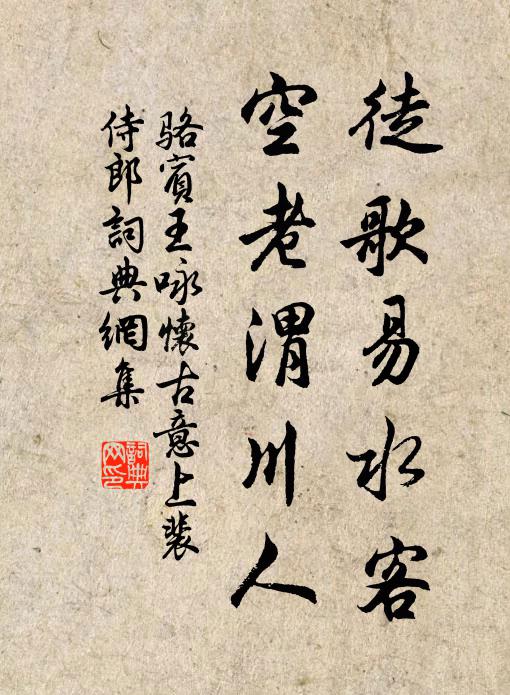 徒歌易水客
空老渭川人
駱賓王咏懷古意上裴
侍郎詞典網集
詞典
网印